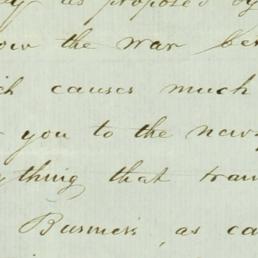 as proposed by
the war
causes much
you to the
thing that
Business, as